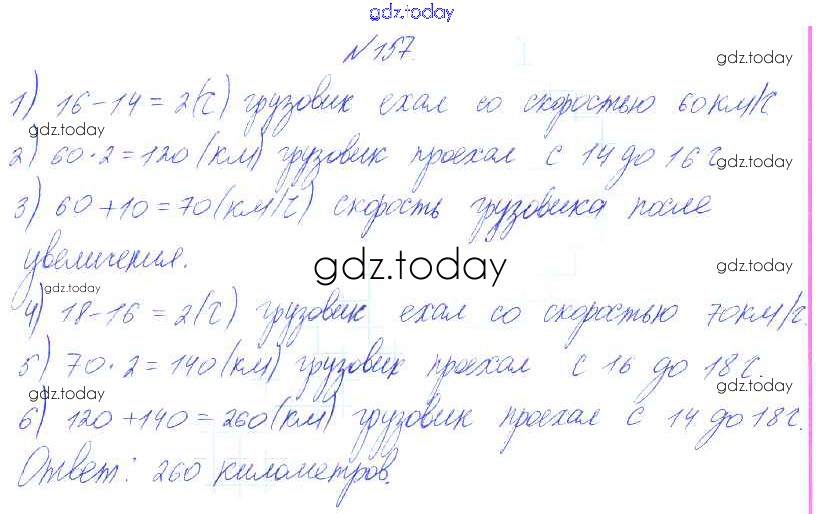 gdz.today
№157.
gdz.today
1) 16-14=2(ч) грузовик ехал со скоростью 60км/ч
gdz.today
2) 60·2=120(км) грузовик проехал с 14 до 16 ч
gdz.today
3) 60+10=70(км/ч) скорость грузовика после
увеличения.
gdz.today
gdz.today
gdz.today
4) 18-16=2(ч) грузовик ехал со скоростью 70км/ч.
5) 70·2=140(км) грузовик проехал с 16 до 18 ч.
gdz.today
gdz.today
6) 120+140=260(км) грузовик проехал с 14 до 18 ч.
Ответ: 260 километров.